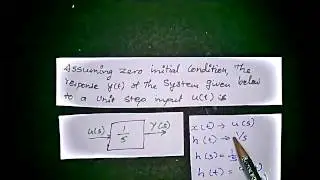 Assuming zero initial condition, the
response y(t) of the System given below
to a unit step input u(t) is
u(s) 1/s Y(s)
x(t) → u(s)
h(t) → 1/s
h(s) = 1/s
h(t) =